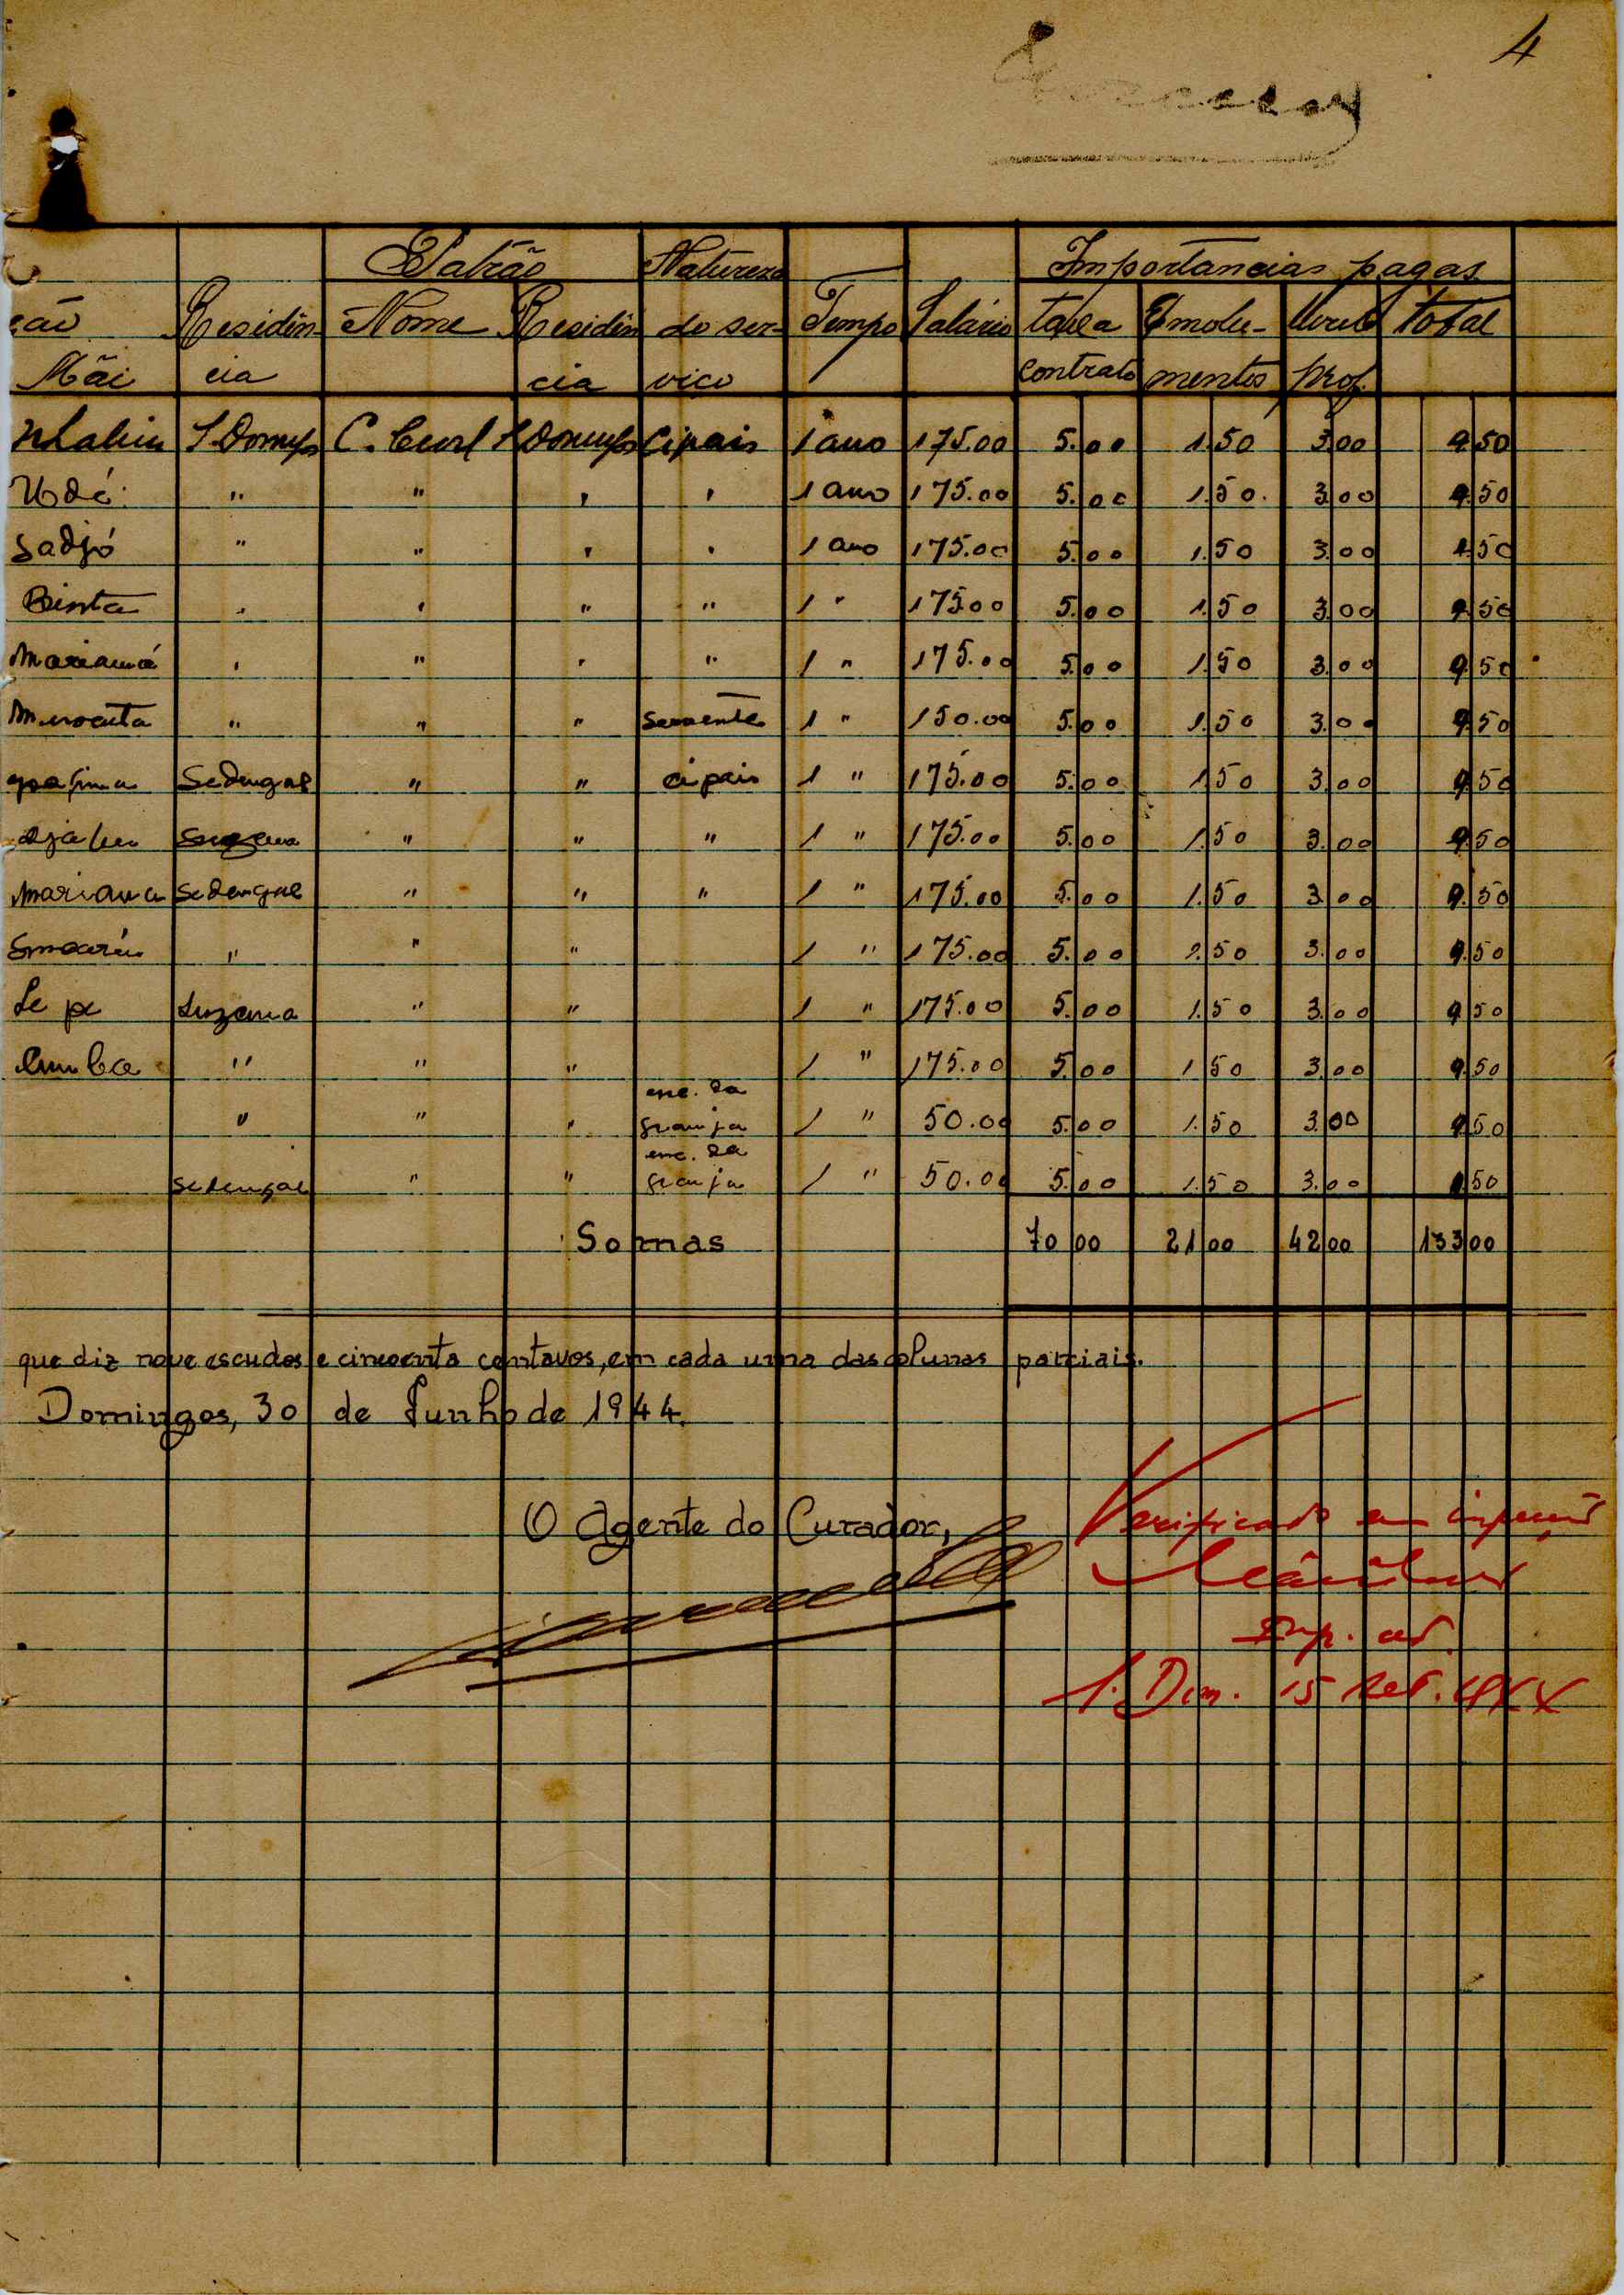 4
Patrão Natureza Importancias pagas
ção Residên- Nome Residên do ser- Tempo Salário taxa Emolu- total
Mãi cia cia viço contrato mentos prof.
S. Domgs C. Civil S. Domgs Cipais 1 ano 175.00 5.00 1.50 3.00 9.50
Udé " " " " 1 ano 175.00 5.00 1.50 3.00 9.50
Sadjó " " " " 1 ano 175.00 5.00 1.50 3.00 9.50
Binta " " " " 1 " 175.00 5.00 1.50 3.00 9.50
Mariamá " " " " 1 " 175.00 5.00 1.50 3.00 9.50
" " " Servente 1 " 150.00 5.00 1.50 3.00 9.50
Sedengal " " cipais 1 " 175.00 5.00 1.50 3.00 9.50
Suzana " " " 1 " 175.00 5.00 1.50 3.00 9.50
Mariama Sedengal " " " 1 " 175.00 5.00 1.50 3.00 9.50
" " " 1 " 175.00 5.00 1.50 3.00 9.50
Suzana " " 1 " 175.00 5.00 1.50 3.00 9.50
" " " 1 " 175.00 5.00 1.50 3.00 9.50
enc. da
" " " granja 1 " 50.00 5.00 1.50 3.00 9.50
enc. da
Sedengal " " granja 1 " 50.00 5.00 1.50 3.00 9.50
Somas 70 00 21 00 42 00 133 00
que diz nove escudos e cincoenta centavos, em cada uma das colunas parciais.
Domingos, 30 de Junho de 1944.
O Agente do Curador,
Verificado em inspecção
Insp. ad.
S. Dom. 15 Set. 944